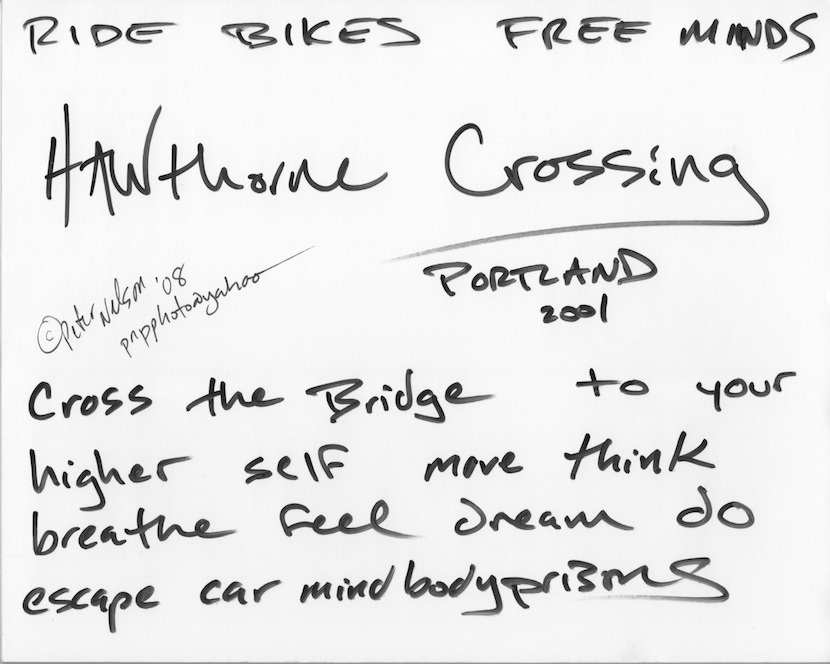 RIDE BIKES FREE MINDS
HAWthorne Crossing
PORTLAND
2001
© Peter Nelson '08
pnpphoto@yahoo
Cross the Bridge to your
higher self move think
breathe feel dream do
escape car mindbodyprisons